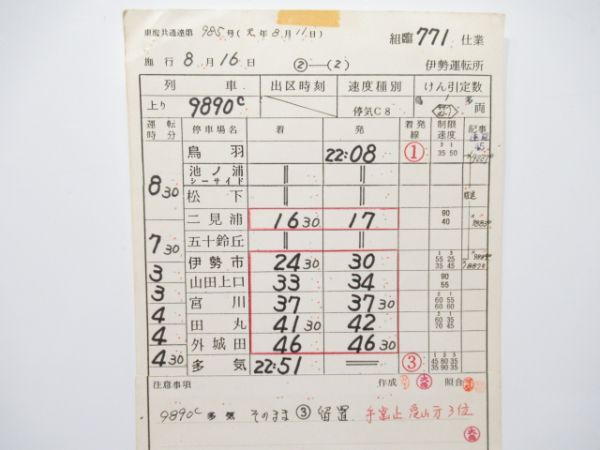 車掌共通達第 985号(元年8月11日)
組臨 771 仕業
施行 8月16日 ②―(2) 伊勢運転所
列車 出区時刻 速度種別 けん引定数
上り 9890C 停気C8 両
運転時分 停車場名 着 発 着発線 制限速度 記事
鳥羽 22:08 ① 35 50
池ノ浦シーサイド || ||
8 30 松下 || ||
二見浦 16 30 17 90 40
7 30 五十鈴丘 || ||
伊勢市 24 30 30 55 25 35 45
3 山田上口 33 34 90 55
3 宮川 37 37 30 60 55 60 35
4 田丸 41 30 42 60 35 70 45
4 外城田 46 46 30
4 30 多気 22:51 ═ ③ 45 80 35 35 90 35
注意事項 作成 照合
9890C 多気 そのまま ③ 留置